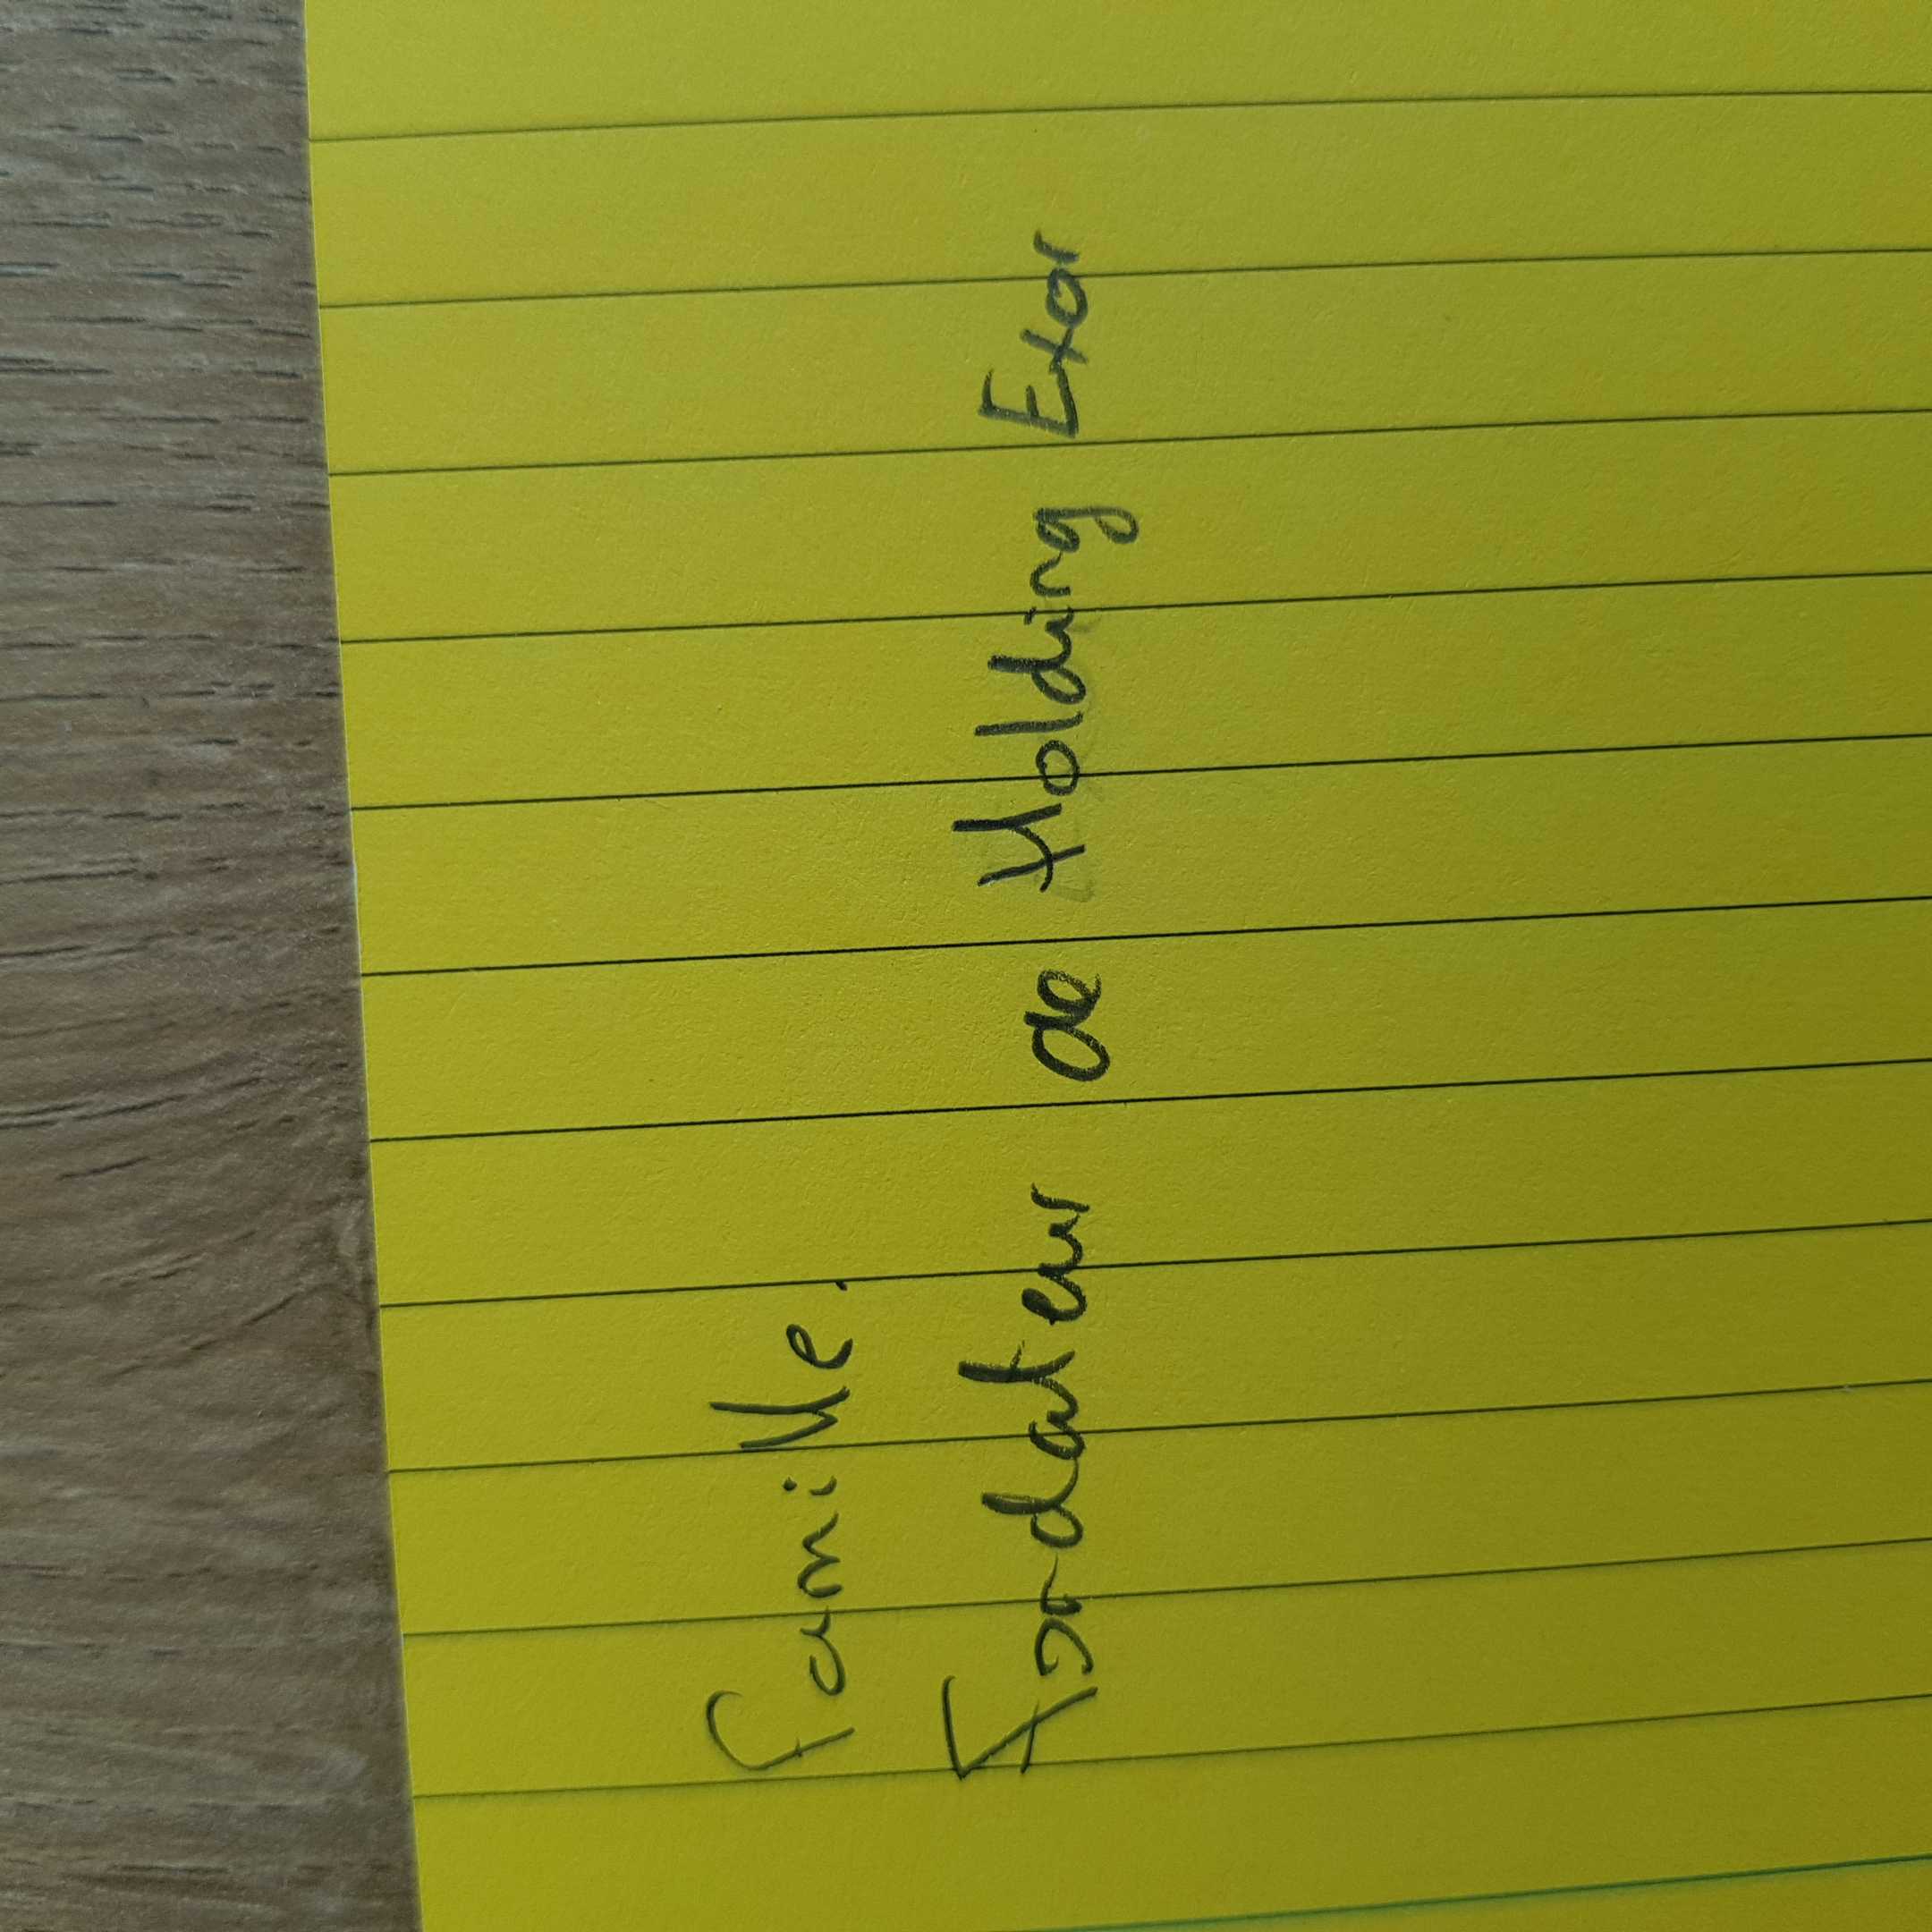 Famille.
Fondateur de Holding Exor